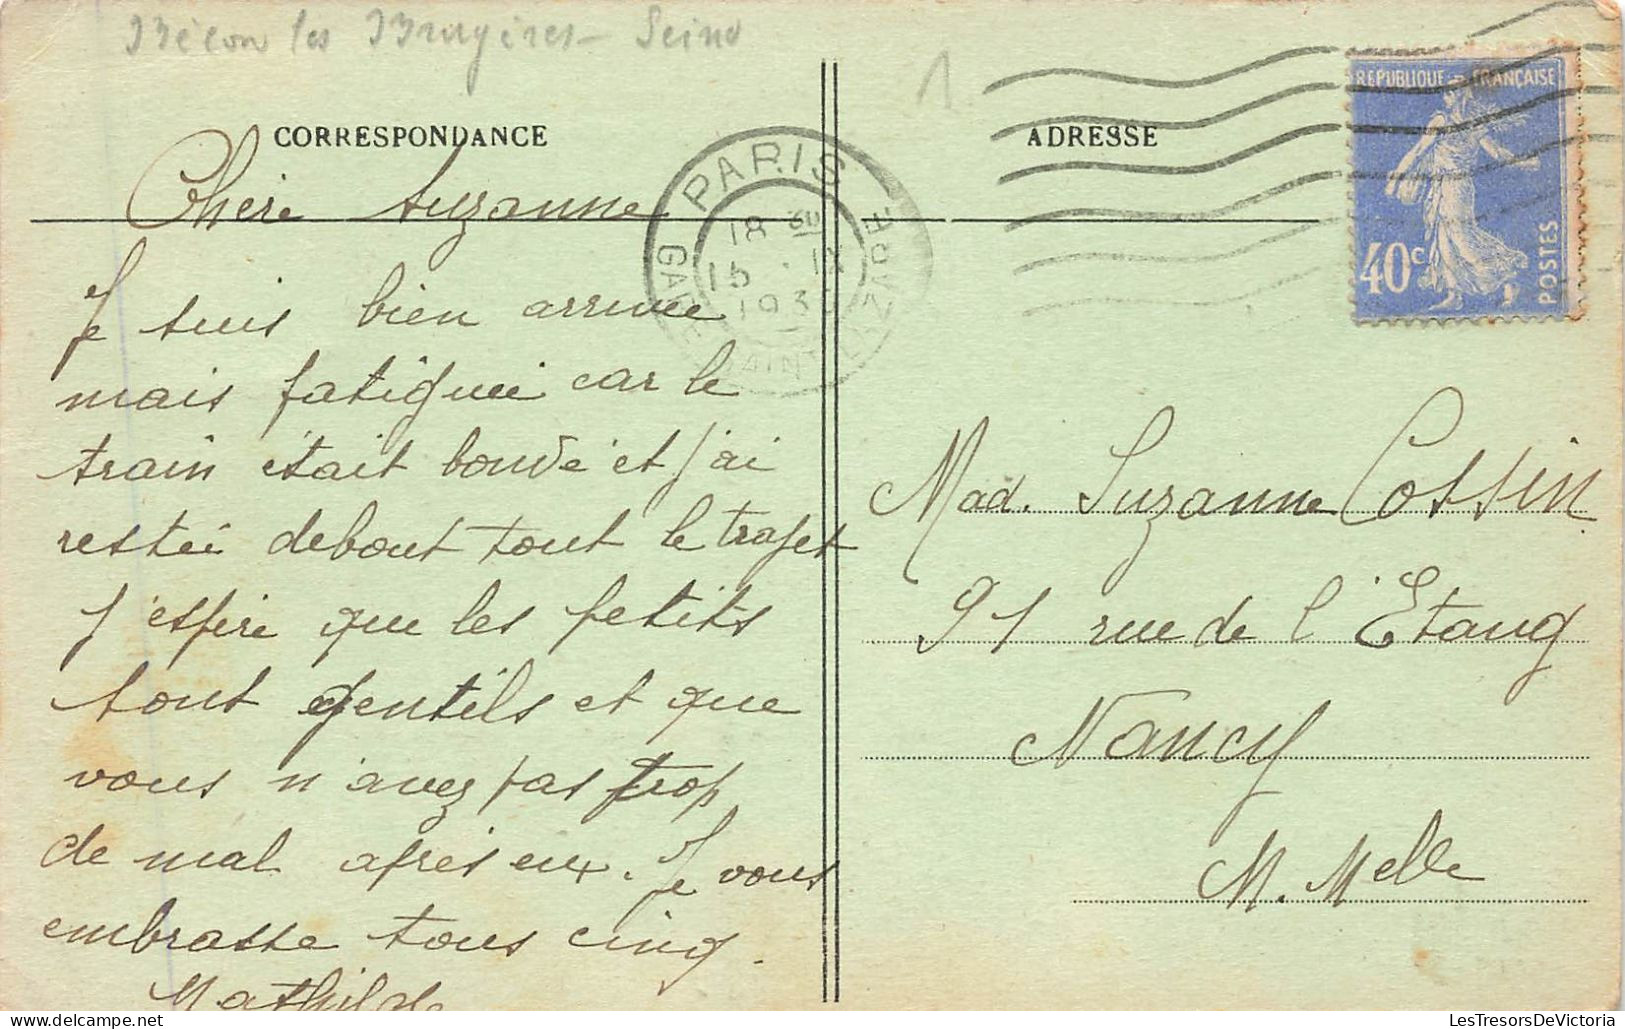 Bécon les Bruyères - Seine
1
CORRESPONDANCE
Chère Suzanne
Je suis bien arrivée
mais fatiguée car le
train était bondé et j'ai
restée debout tout le trajet
J'espère que les petits
sont gentils et que
vous n'avez pas trop
de mal après eux. Je vous
embrasse tous cinq.
Mathilde
PARIS
GARE SAINT LAZARE
18 30
15 · IX
193
ADRESSE
REPUBLIQUE FRANÇAISE
40c
POSTES
Mad. Suzanne Cossin
91 rue de l'Etang
Nancy
M. Melle
LesTresorsDeVictoria